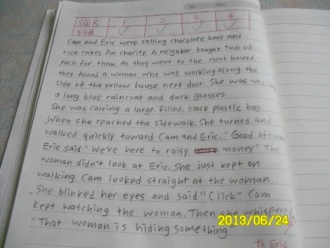 1 2 3 4
Cam and Eric were selling chocolate bars and
rice cakes for charity. A neighbor bought two of
each for them. As they went to the next house
they found a woman who was walking along the
side of the yellow house next door. She was wearing
a long blue raincoat and dark glasses.
She was caring a large filled, black plastic bag.
When she reached the sidewalk. She turned and
walked quickly toward Cam and Eric. "Good
Eric said "we're here to raisy money" The
woman didn't look at Eric. She just kept on
walking. Cam looked straight at the woman.
She blinked her eyes and said "Click" Cam
kept watching the woman. Then she whispered
"That woman is hiding something.
2013/06/24
To Eric